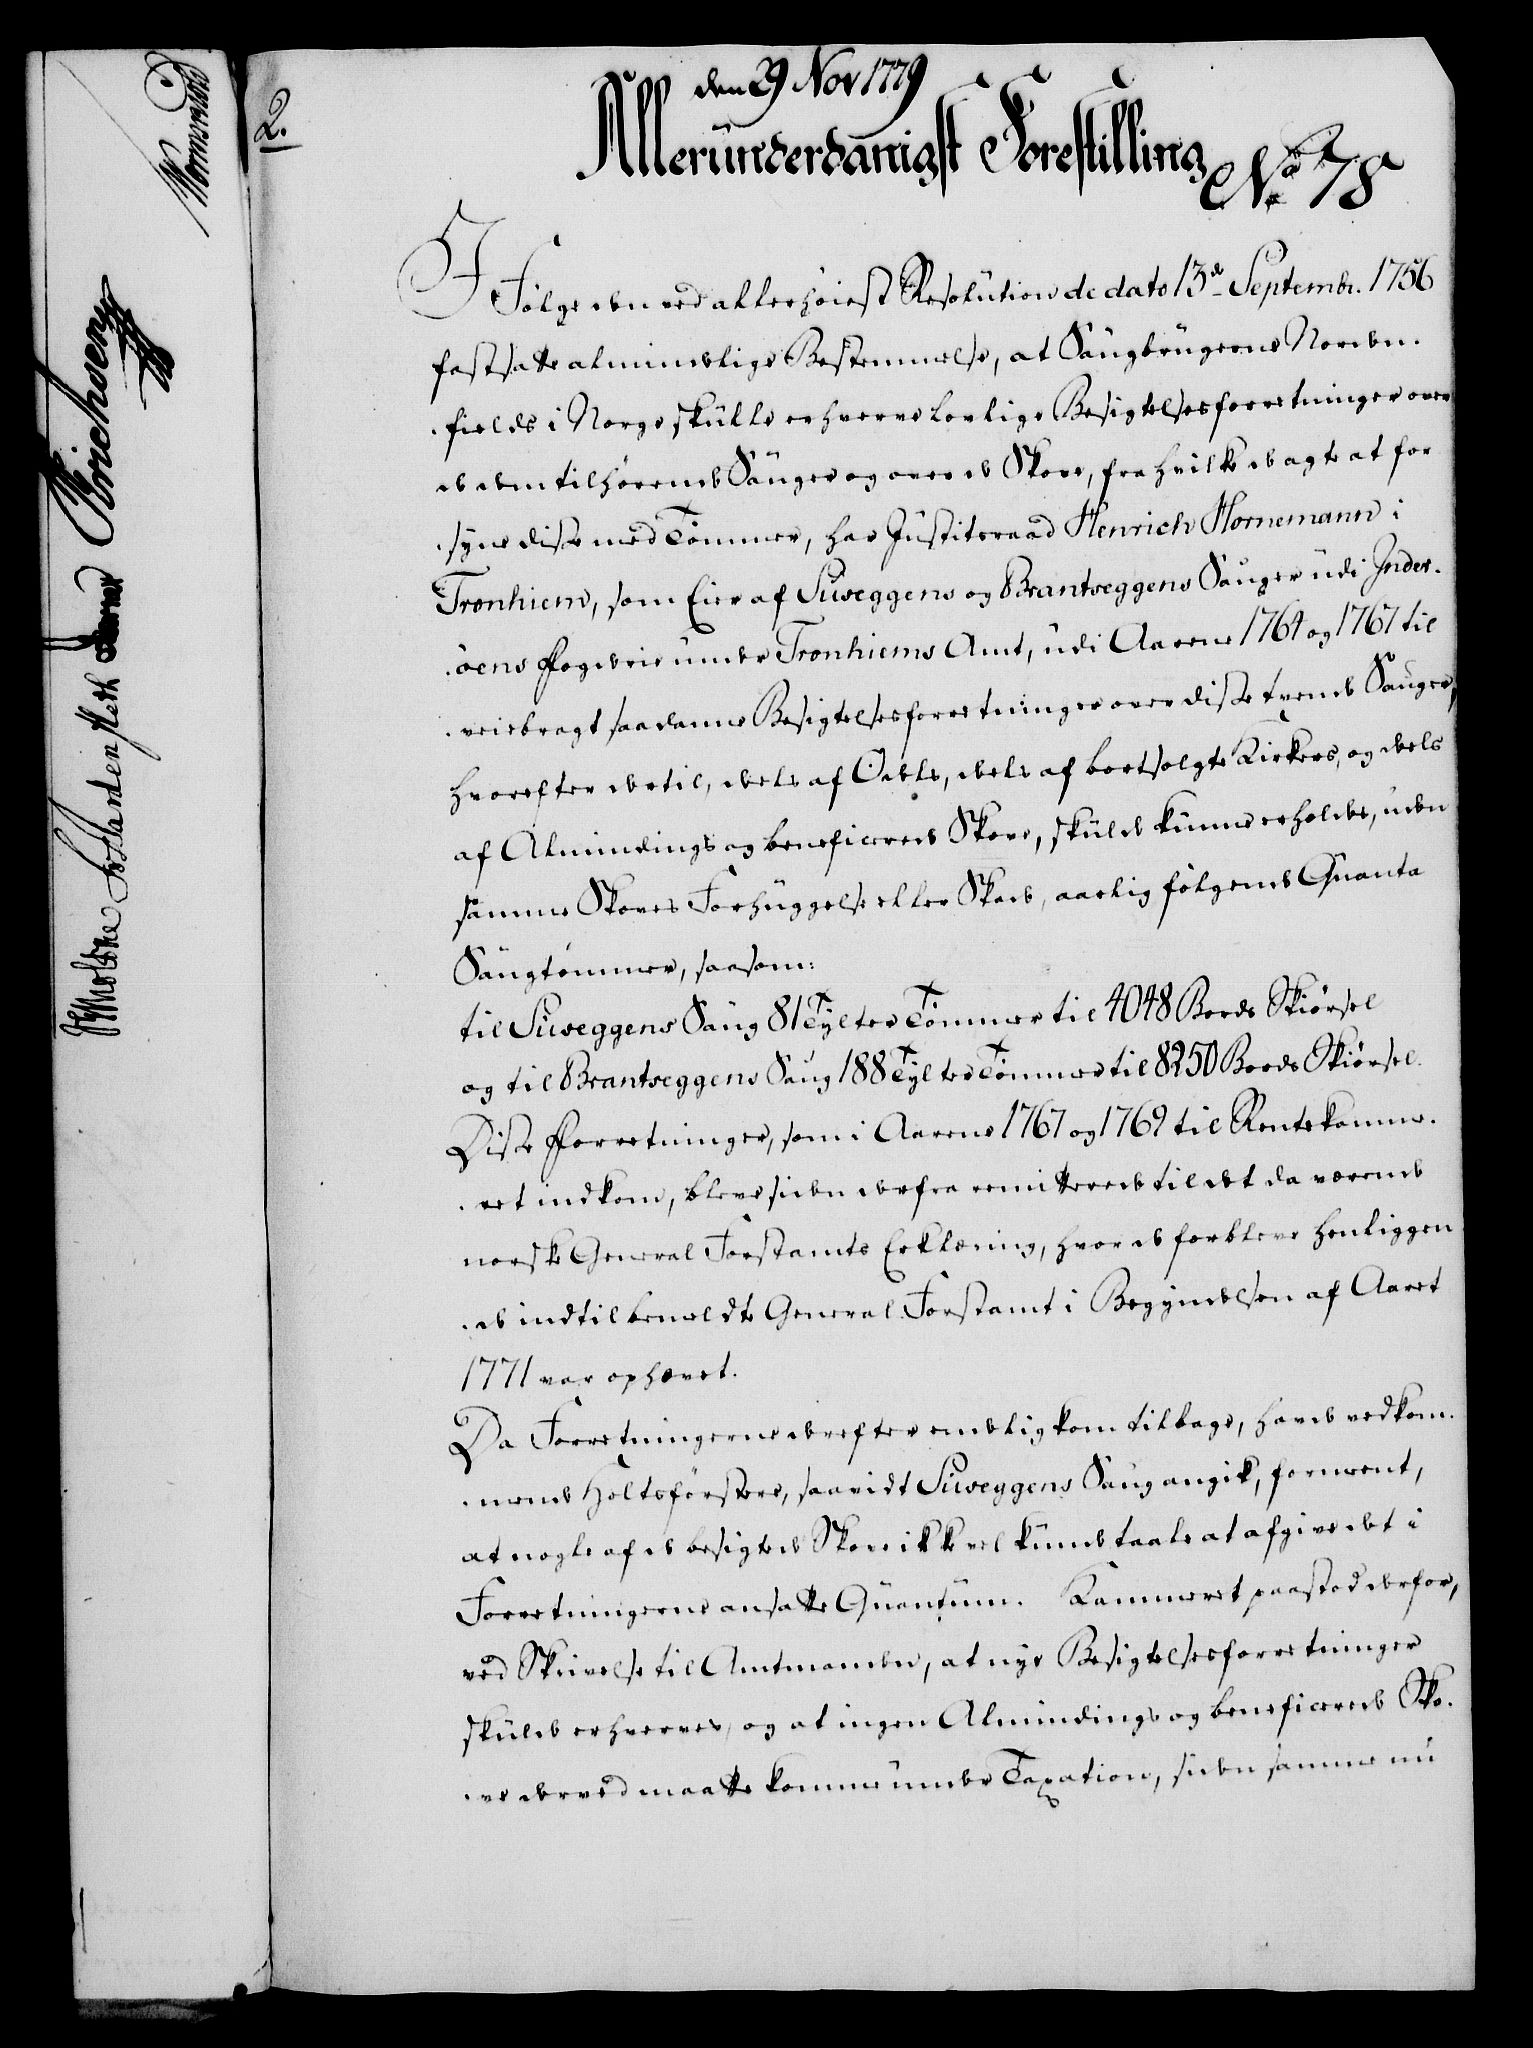 2.
den 29 Nov 1779
Allerunderdanigst Forestilling
No 78
I Følge den ved allerhøiest Resolution de dato 13de Septembr. 1756
fastsatte almindelige Bestemmelse, at Saugbrugerne Norden-
-fields i Norge skulle erhverve lovlige Besigtelsesforretninger over
de dem tilhørende Sauger og over de Skove, fra hvilke de agte at for
-syne disse med Tømmer, har Justitsraad Henrich Hornemann i
Tronhiem, som Eier af Suseggens og Brantseggens Sauger udi Inder-
-öens Fogderie under Tronhiems Amt, udi Aarene 1764 og 1767 til
-veiebragt saadanne Besigtelsesforretninger over disse tvende Sauger,
hvorefter dertil, deels af Odels, deels af bortsolgte Kirkers, og deels
af Almindings og beneficerede Skove, skulde kunne erholdes, uden
samme Skoves Forhuggelse eller Skade, aarlig følgende Quanta
Saugtømmer, saasom:
til Suseggens Saug 81 Tylter Tømmer til 4048 Bords Skiørsel
og til Brantseggens Saug 188 Tylter Tømmer til 8250 Bords Skiørsel.
Disse Forretninger, som i Aarene 1767 og 1769 til Rentekamme-
-ret indkom, bleve siden derfra remitterede til det da værende
norske General Forstamts Erklæring, hvor de forbleve henliggen
-de indtil bemeldte General-Forstamt i Begyndelsen af Aaret
1771 var ophævet.
Da Forretningerne derefter endelig kom tilbage, havde vedkom-
-mende Holtsførstere, saavidt Suseggens Saug angik, formeent,
at nogle af de besigtede Skove ikke vel kunde taale at afgive det i
Forretningerne ansatte Quantum. Kammeret paastod derfor,
ved Skrivelse til Amtmanden, at nye Besigtelsesforretninger
skulde erhverves, og at ingen Almindings og beneficerede Sko-
-ve derved maatte komme under Taxation, siden samme nu
Wormskiold
Erichsen